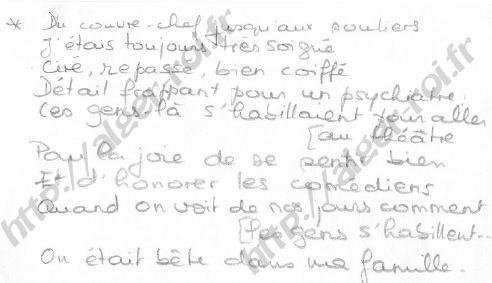 * Du couvre-chef jusqu'aux souliers
J'étais toujours très soigné
Ciré, repassé, bien coiffé
Détail frappant pour un psychiatre
Ces gens-là s'habillaient pour aller
[au théâtre
Pour la joie de se sentir bien
Et d'honorer les comédiens
Quand on voit de nos jours comment
[les gens s'habillent...
On était bête dans ma famille.
http://alger-roi.fr
http://alger-roi.fr